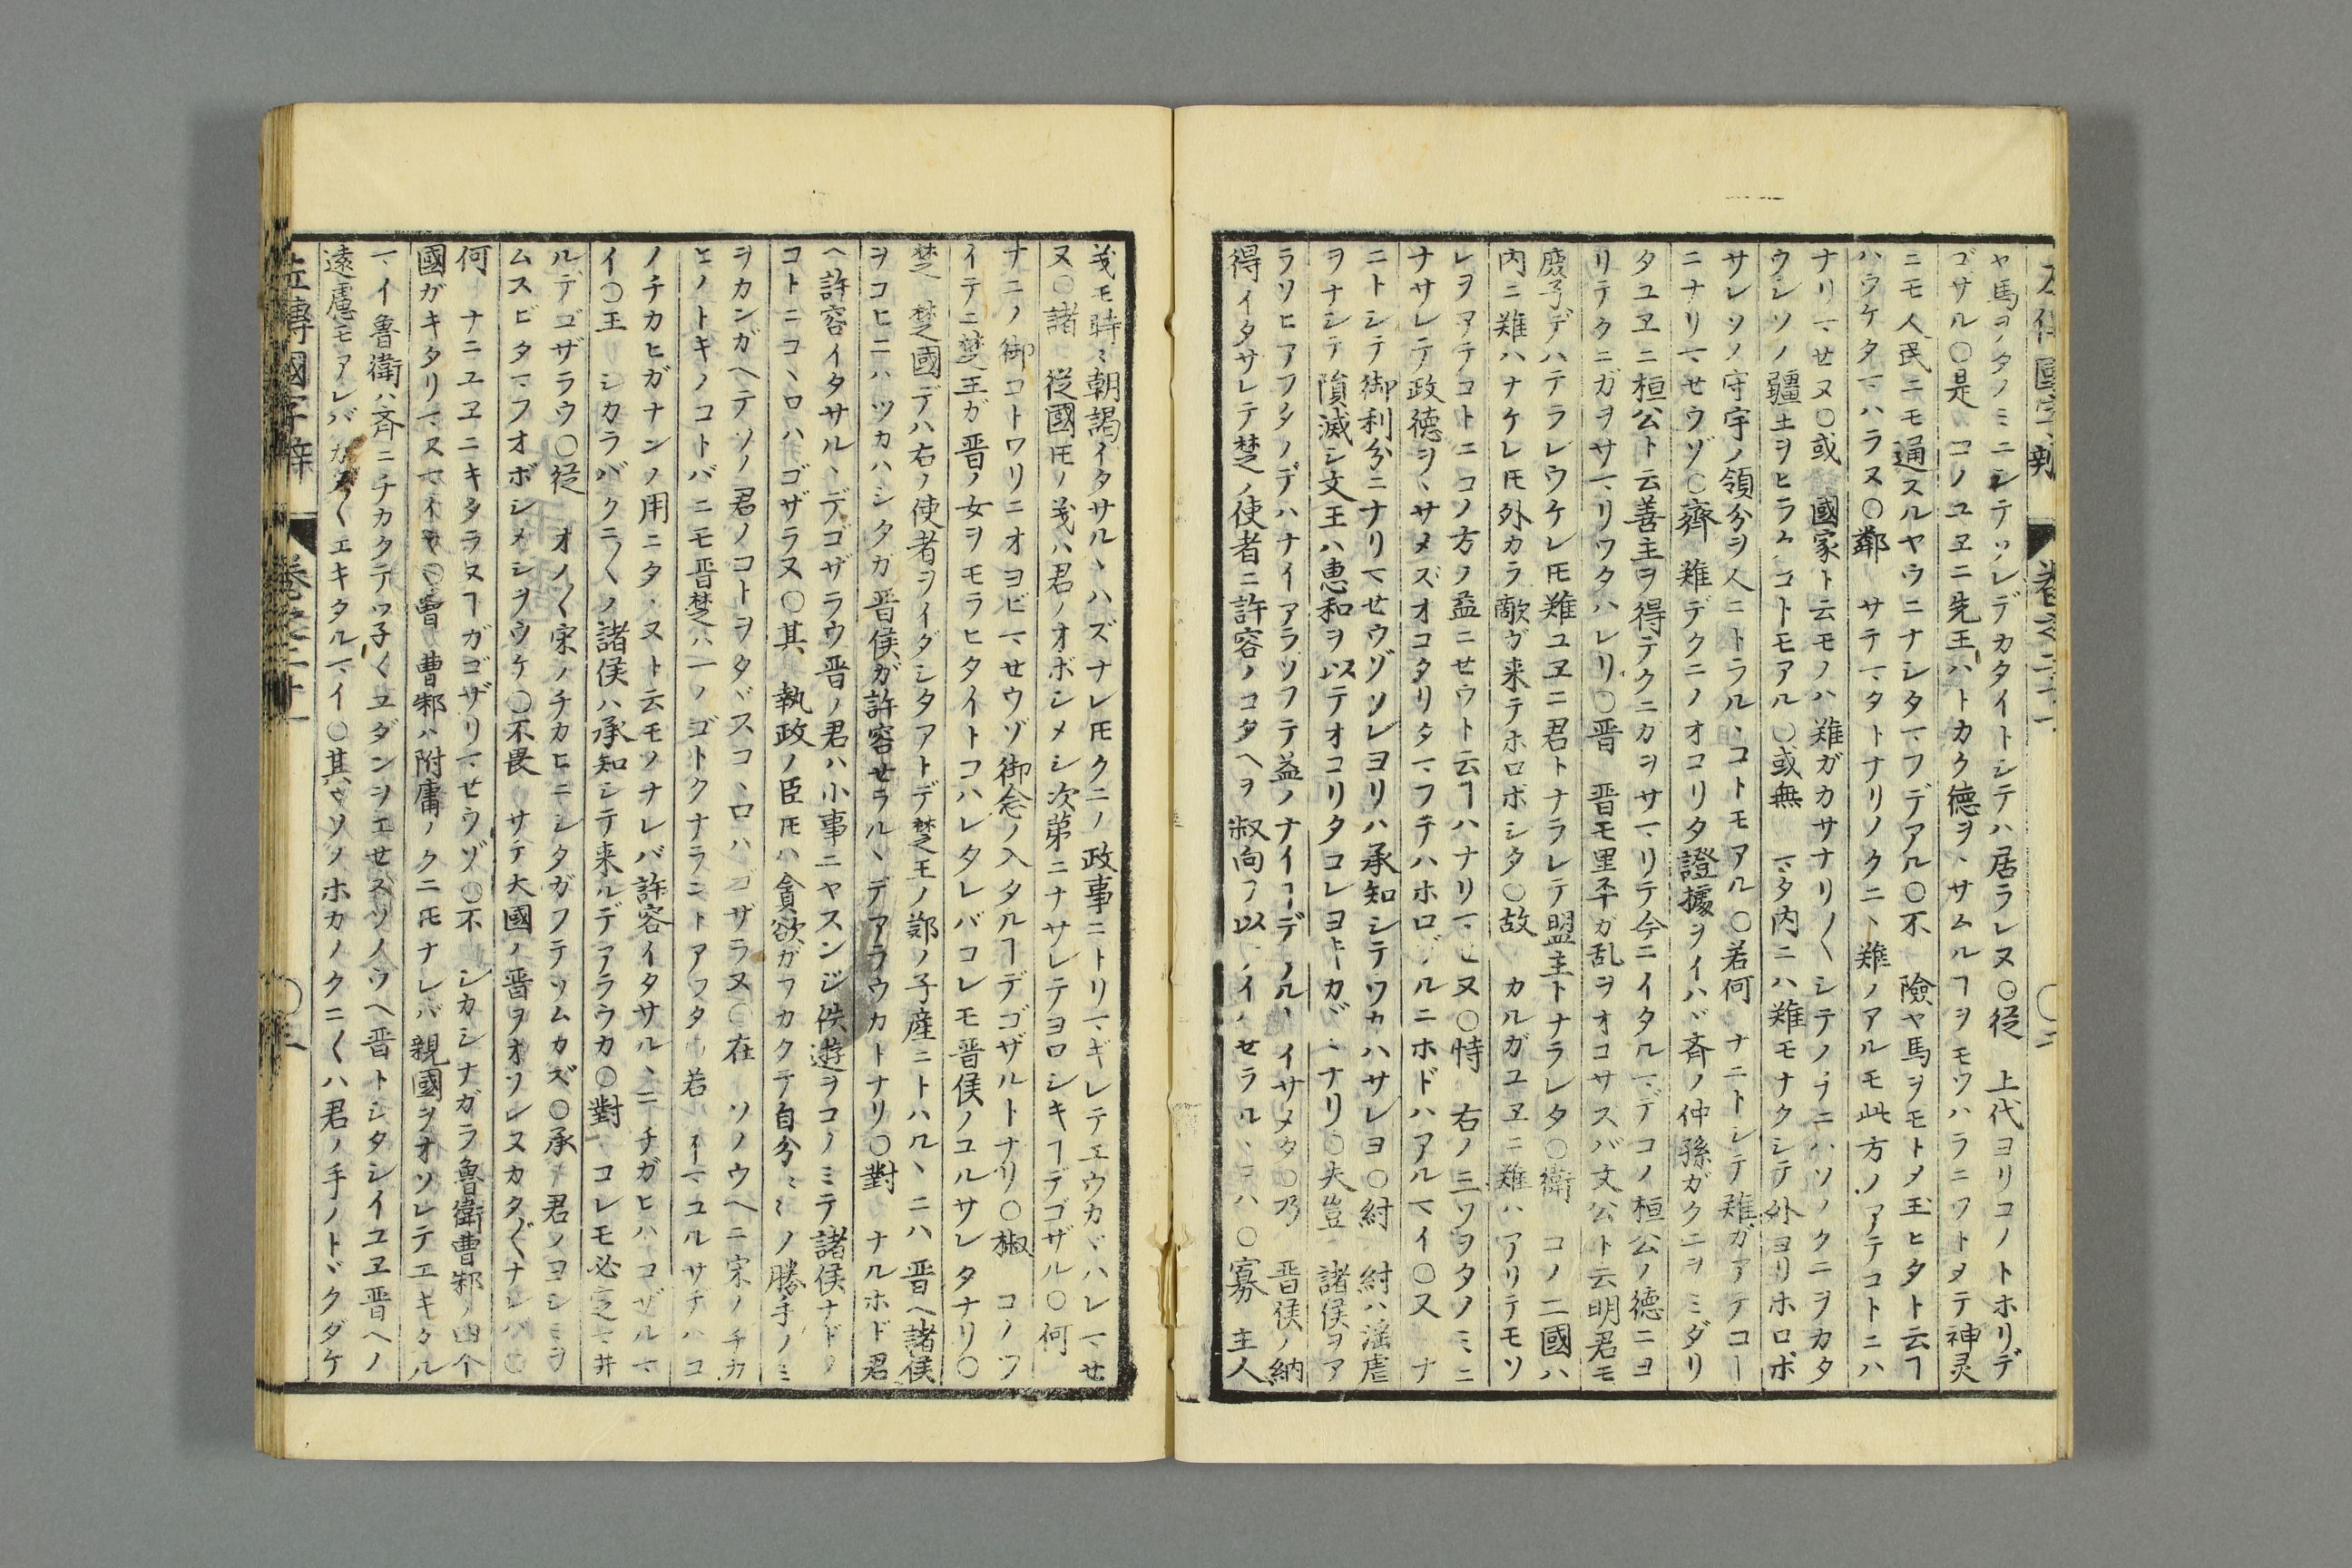 ヤ馬ヲノタノミニシテソレデカタイトシテハ居ラレヌ○従 上代ヨリコノトホリデ
ゴサル○是 コノユヱニ先王ハトカク德ヲヽサムルヿヲモツハラニツトメテ神灵
ニモ人民ニモ通スルヤウニナシタマフデアル○不 險ヤ馬ヲモトメ玉ヒタト云ヿ
ハウケタマハラヌ○鄰 サテマタトナリノクニヽ難ノアルモ此方ノアテコトニハ
ナリマせヌ○或 國家ト云モノハ難ガカサナリ〳〵シテノチニハソノクニヲカタ
ウシソノ疆土ヲヒラムコトモアル○或無 マタ内ニハ難モナクシテ外ヨリホロボ
サレソノ守宇ノ領分ヲ人ニトラルヽコトモアル○若何 ナニトシテ難ガアテコヿ
ニナリマせウゾ○齊 難デクニノオコリタ證據ヲイハヾ斉ノ仲孫ガクニヲミダリ
タユヱニ桓公ト云善主ヲ得テクニガヲサマリテ今ニイタルマデコノ桓公ノ德ニヨ
リテクニガヲサマリワタハレリ○晋 晋モ里丕ガ乱ヲオコサスバ文公ト云明君モ
慶予デハテラレウケレ𪜈難ユヱニ君トナラレテ盟主トナラレタ○衛 コノ二國ハ
内ニ難ハナケレ𪜈外カラ敵ガ来テホロボシタ○故 カルガユヱニ難ハアリテモソ
レヲアテコトニコノ方ノ益ニせウト云ヿハナリマせヌ○恃 右ノ三ツヲタノミニ
ナサレテ政德ヲヽサメズオコタリタマフテハホロブルニホドハアルマイ○又 ナ
ニトシテ御利分ニナリマせウゾソレヨリハ承知シテツカハサレヨ○紂 紂ハ淫虐
ヲナシテ隕滅シ文王ハ惠和ヲ以テオコリタコレヨキカヾミナリ○夫豈 諸侯ヲア
ラソヒアフタノデハナイアラソフテ益ノナイヿデノルトイサメタ○乃 晋侯ノ納
得イタサレテ楚ノ使者ニ許容ノコタヘヲ叔向ヲ以テイハせラルヽヨハ○寡 主人
義モ時ミ朝謁イタサルヽハズナレ𪜈クニノ政事ニトリマギレテヱウカヾハレマせ
ヌ○諸 從國𪜈ノ義ハ君ノオボシメシ次第ニナサレテヨロシキヿデゴザル○何
ナニノ御コトワリニオヨビマせウゾ御念ノ入タルヿデゴザルトナリ○椒 コノツ
イテニ楚王ガ晋ノ女ヲモラヒタイトコハレタレバコレモ晋侯ノユルサレタナリ○
楚 楚國デハ右ノ使者ヲイダシタアトデ楚王ノ鄭ノ子産ニトハルヽニハ晋ヘ諸侯
ヲコヒニハツカハシタガ晋侯ガ許容せラルヽデアラウカトナリ○對 ナルホド君
ヘ許容イタサルヽデゴザラウ晋ノ君ハ小事ニヤスンジ佚遊ヲコノミテ諸侯ナドノ
コトニコヽロハゴザラヌ○其 執政ノ臣𪜈ハ貪欲ガフカクテ自分ミミノ勝手ノミ
ヲカンガヘテソノ君ノコトヲタヾスコヽロハゴザラヌ○在 ソノウヘニ宋ノチカ
ヒノトキノコトバニモ晋楚ハ一ノゴトクナラントアフタ 若 イマユルサデハコ
ノチカヒガナンノ用ニタヽヌト云モノナレバ許容イタサルヽニチガヒハゴザルマ
イ○王 シカラバクニ〳〵ノ諸侯ハ承知シテ来ルデアラウカ○對 コレモ必定マ井
ルデゴザラウ○従 オノ〳〵宋ノチカヒニシタガフテソムカズ○承 君ノヨシミヲ
ムスビタマフオボシメシヲウケ○不畏 サテ大國ノ晋ヲオソレヌカタ〴〵ナレバ○
何 ナニユヱニキタラヌヿガゴザリマせウゾ○不 シカシナガラ魯衛曹邾ノ四个
國ガキタリマスマイ○曹 曹邾ハ附庸ノクニ𪜈ナレバ親國ヲオソレテエキタル
マイ魯衛ハ斉ニチカクテヮ子〳〵ユダンヲエせズソノウヘ晋トシタシイユヱ晋ヘノ
遠慮モアレバカタ〴〵エキタルマイ○其 ソノホカノクニ〳〵ハ君ノ手ノトヾクダケ
左傳國字辯 卷之二十一